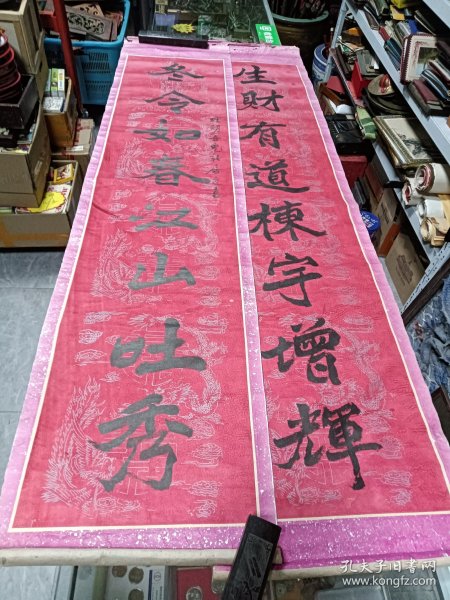 生財有道棟宇增輝
冬令如春江山吐秀
孔夫子旧书网
www.kongfz.com